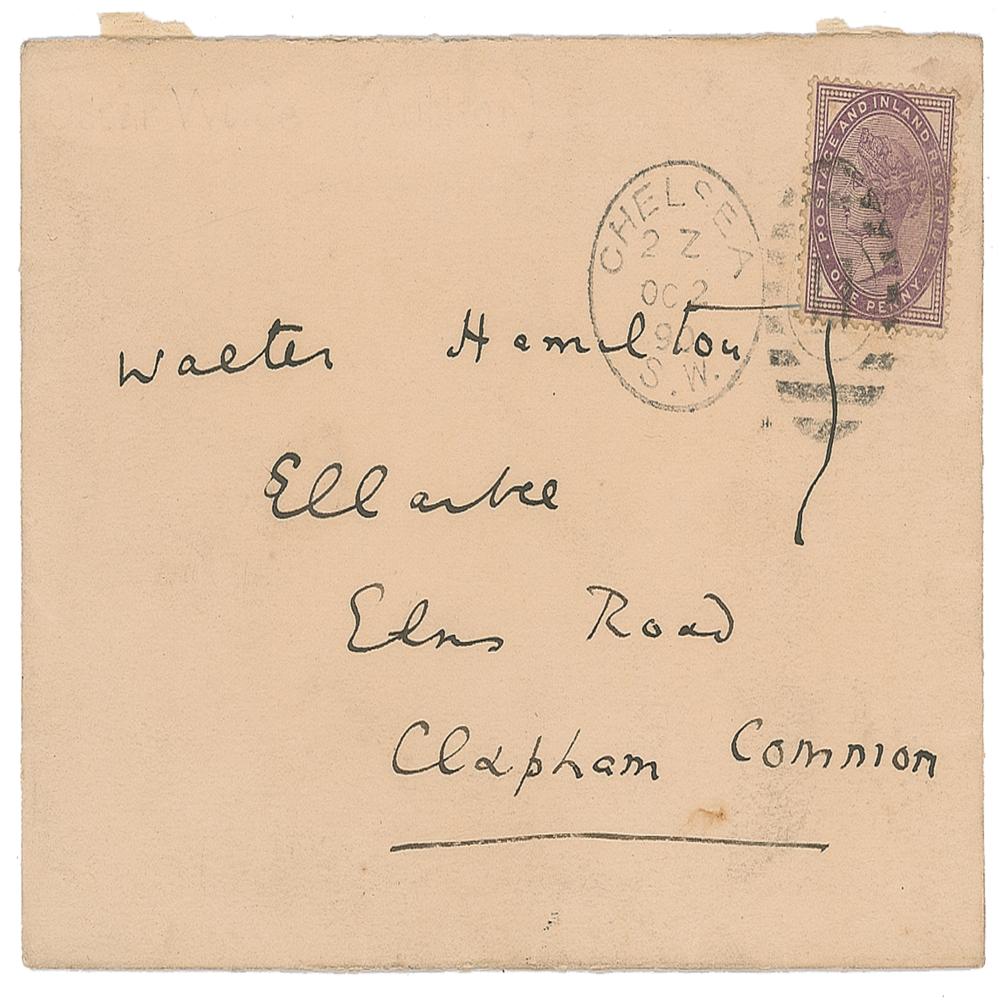 POSTAGE AND INLAND REVENUE
ONE PENNY
CHELSEA
2 Z
OC 2
90
S.W.
Walter Hamilton
Ellarbee
Elms Road
Clapham Common